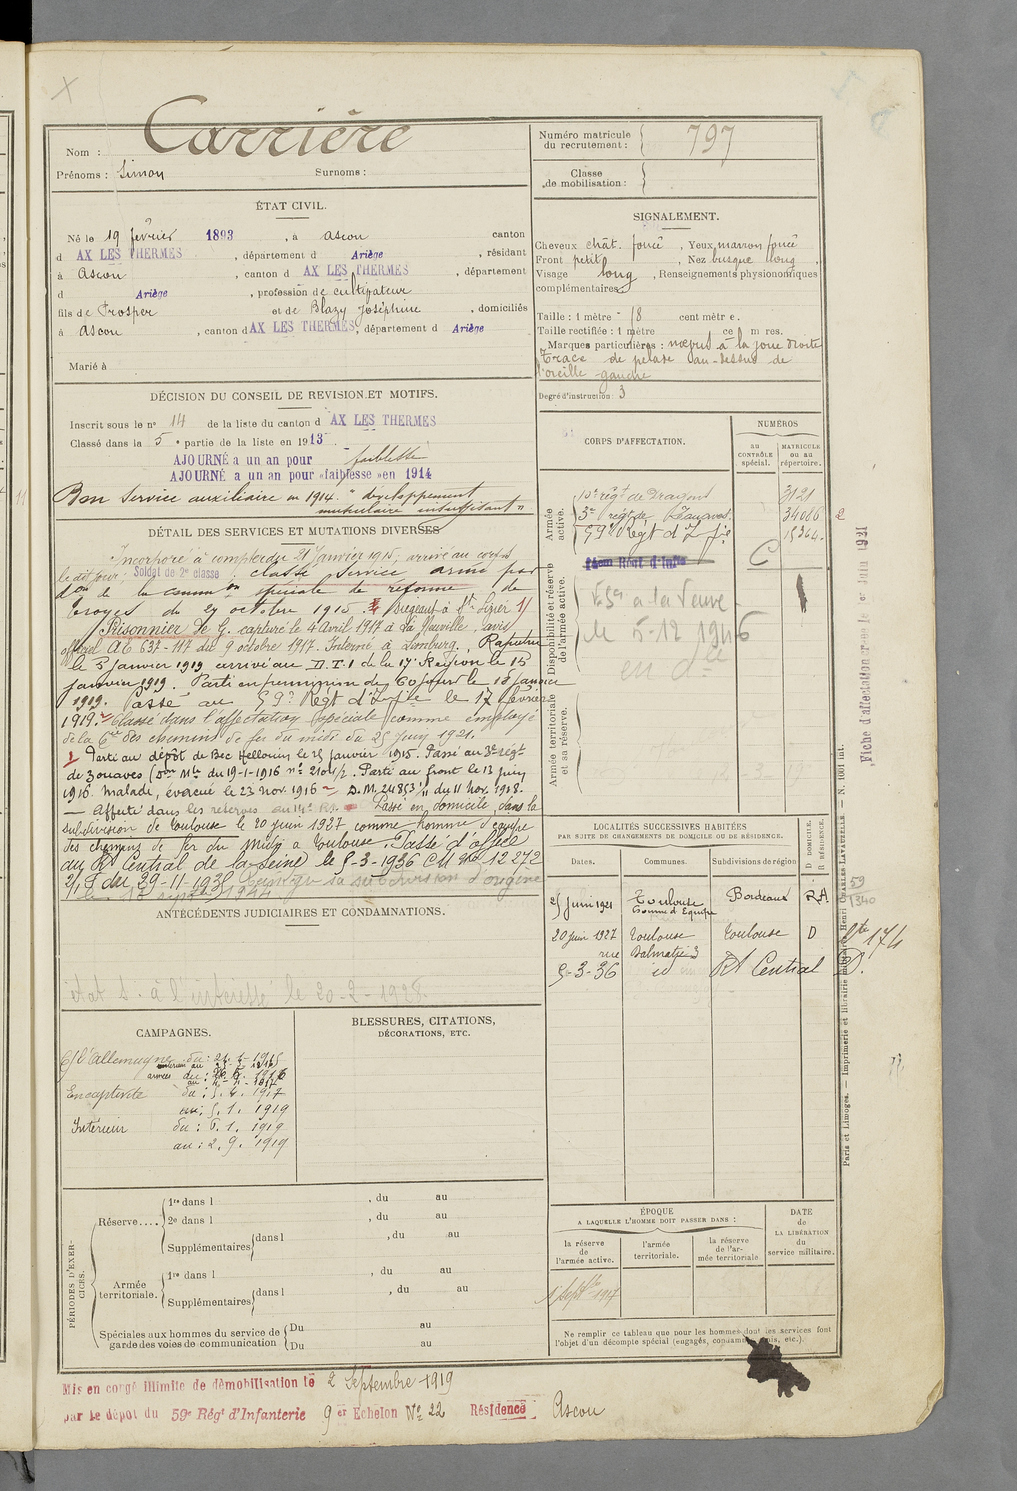 Nom : Carrière
Prénoms : Simon Surnoms :
Numéro matricule du recrutement : 797
Classe de mobilisation :
ÉTAT CIVIL.
Né le 19 février 1893, à Ascou canton
d AX LES THERMES, département d Ariège, résidant
à Ascou, canton d AX LES THERMES, département
d Ariège, profession de cultivateur
fils de Prosper et de Blazy Joséphine, domiciliés
à Ascou, canton d AX LES THERMES, département d Ariège
Marié à
SIGNALEMENT.
Cheveux chât. foncé, Yeux marron foncé
Front petit, Nez busqué long,
Visage long, Renseignements physionomiques
complémentaires :
Taille : 1 mètre 58 centimètre.
Taille rectifiée : 1 mètre centimètres.
Marques particulières : nœvus à la joue droite
Trace de pelade au-dessus de
l'oreille gauche
Degré d'instruction : 3
DÉCISION DU CONSEIL DE REVISION ET MOTIFS.
Inscrit sous le n° 14 de la liste du canton d AX LES THERMES
Classé dans la 5e partie de la liste en 1913
AJOURNÉ a un an pour faiblesse
AJOURNÉ a un an pour «faiblesse» en 1914
Bon service auxiliaire en 1914. "développement
musculaire insuffisant"
DÉTAIL DES SERVICES ET MUTATIONS DIVERSES
Incorporé à compter du 21 Janvier 1915, arrivé au corps
le dit jour, Soldat de 2e classe, classé service armé par
don de la common spéciale de réforme de
Troyes du 27 octobre 1915.
Prisonnier de G. capturé le 4 Avril 1917 à La Neuville, avis
officiel AC 637-117 du 9 octobre 1917. Interné à Limburg, Rapatrié
le 3 Janvier 1919 arrivé au D.T.I de la 17e Région le 15
janvier 1919. Parti en permission de 60 jours le 16 Janvier
1919. Passé au 59e Régt d'Infie le 17 février
1919. Classé dans l'affectation spéciale comme employé
de la Cie des chemins de fer du midi du 25 juin 1921.
Parti au dépôt de Bec Hellouin le 25 Janvier 1915. Passé au 3e régt
de Zouaves don Mle du 19-1-1916 n° 2101/2. Parti au front le 13 juin
1916. Malade, évacué le 23 nov. 1916 D.M. 24853/11 du 11 nov. 1918.
— Affecté dans les réserves au 14e R.I. Passé en domicile dans la
subdivision de Toulouse le 20 juin 1927 comme homme d'équipe
des chemins de fer du Midi à Toulouse. Passé d'office
au Rt Central de la Seine le 5-3-1936 CM n° 12272
du 29-11-1935 sa subdivision d'origine
ANTÉCÉDENTS JUDICIAIRES ET CONDAMNATIONS.
état S. à l'intéressé le 20-2-1928.
CORPS D'AFFECTATION.
NUMÉROS
AU CONTRÔLE spécial.
MATRICULE ou au répertoire.
Armée active.
10e régt de Dragons 3121
3e régt de Zouaves. 34086
59e Régt d'Infie 15364
Disponibilité et réserve de l'armée active.
14eme Régt d'Infie
C
à la Veuve
le 5-12 1946
Armée territoriale et sa réserve.
LOCALITÉS SUCCESSIVES HABITÉES
PAR SUITE DE CHANGEMENTS DE DOMICILE OU DE RÉSIDENCE.
Dates. Communes. Subdivisions de région D DOMICILE. R RÉSIDENCE.
25 juin 1921 Toulouse Bordeaux RA
homme d'Equipe
20 juin 1927 Toulouse Toulouse D
rue Dalmatie 3
5-3-36 id Rt Central D.
59
1340
174
Fiche d'affectation créée le 1er Juin 1921
CAMPAGNES.
C/ l'Allemagne
intérieur
armées
En captivité du : 5. 4. 1917
au : 5. 1. 1919
Intérieur du : 6. 1. 1919
au : 2. 9. 1919
BLESSURES, CITATIONS,
DÉCORATIONS, ETC.
PÉRIODES D'EXERCICES.
Réserve.... 1re dans l , du au
2e dans l , du au
Supplémentaires dans l , du au
Armée territoriale. 1re dans l , du au
Supplémentaires dans l , du au
Spéciales aux hommes du service de garde des voies de communication Du au
Du au
ÉPOQUE
A LAQUELLE L'HOMME DOIT PASSER DANS :
la réserve de l'armée active. l'armée territoriale. la réserve de l'armée territoriale
DATE de LA LIBÉRATION du service militaire.
1 Septbre 1917
Ne remplir ce tableau que pour les hommes dont les services font
l'objet d'un décompte spécial (engagés, condamnés, omis, etc.).
Paris et Limoges. — Imprimerie et librairie militaires Henri CHARLES-LAVAUZELLE. — N. 1001 int.
Mis en congé illimité de démobilisation le 2 Septembre 1919
par le dépôt du 59e Régt d'Infanterie 9er Echelon N° 22 Résidence : Ascou